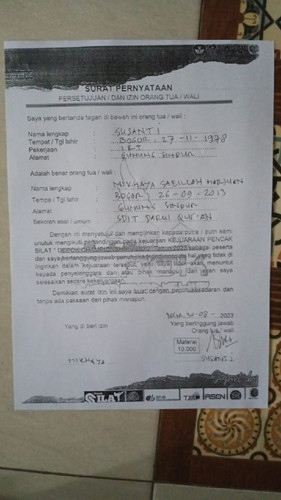 SURAT PERNYATAAN
PERSETUJUAN / DAN IZIN ORANG TUA / WALI
Saya yang bertanda tagan di bawah ini orang tua / wali :
Nama lengkap : SUSANTI
Tempat / Tgl lahir : BOGOR, 27-11-1978
Pekerjaan : IRT
Alamat : GUNUNG SINDUR
Adalah benar orang tua / wali :
Nama lengkap :
Tempat / Tgl lahir : BOGOR, 26-09-2013
Alamat : GUNUNG SINDUR
Sekolah asal / umum : SDIT DARUL QUR'AN
Dengan ini menyetujui dan mengijinkan kepada putra / putri kami
untuk mengikuti pertandingan pada kejuaraan KEJUARAAN PENCAK
SILAT
dan saya bertanggung jawab penuh hal yang tidak di
inginkan dalam kejuaraan tersebut,
kepada penyelenggara dan atau pihak manapun dan saya
selesaikan secara kekeluargaan.
Demikian surat izin ini saya buat dengan penuh kesadaran dan
tanpa ada paksaan dari pihak manapun.
08 - 2023
Yang di beri izin
Yang bertinggung jawab
Orang tua / wali
Materai
10.000
SUSANTI
SILAT